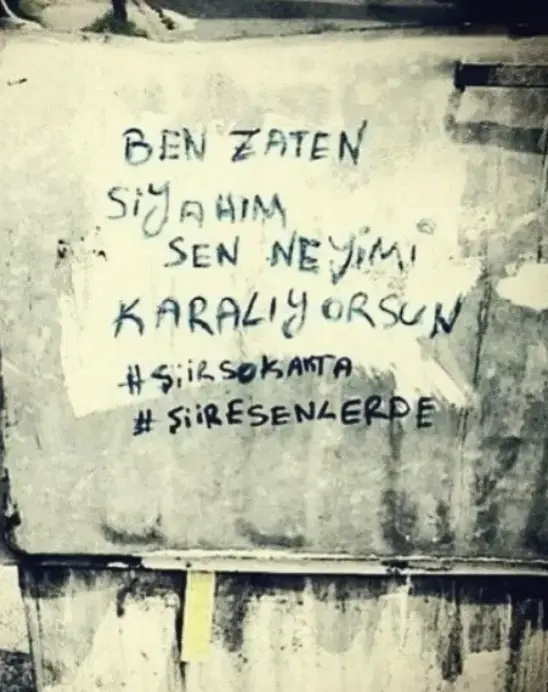 BEN ZATEN
SiYAHIM
SEN NEYiMi
KARALIYORSUN
#ŞiiRSOKAKTA
#ŞiiRESENLERDE